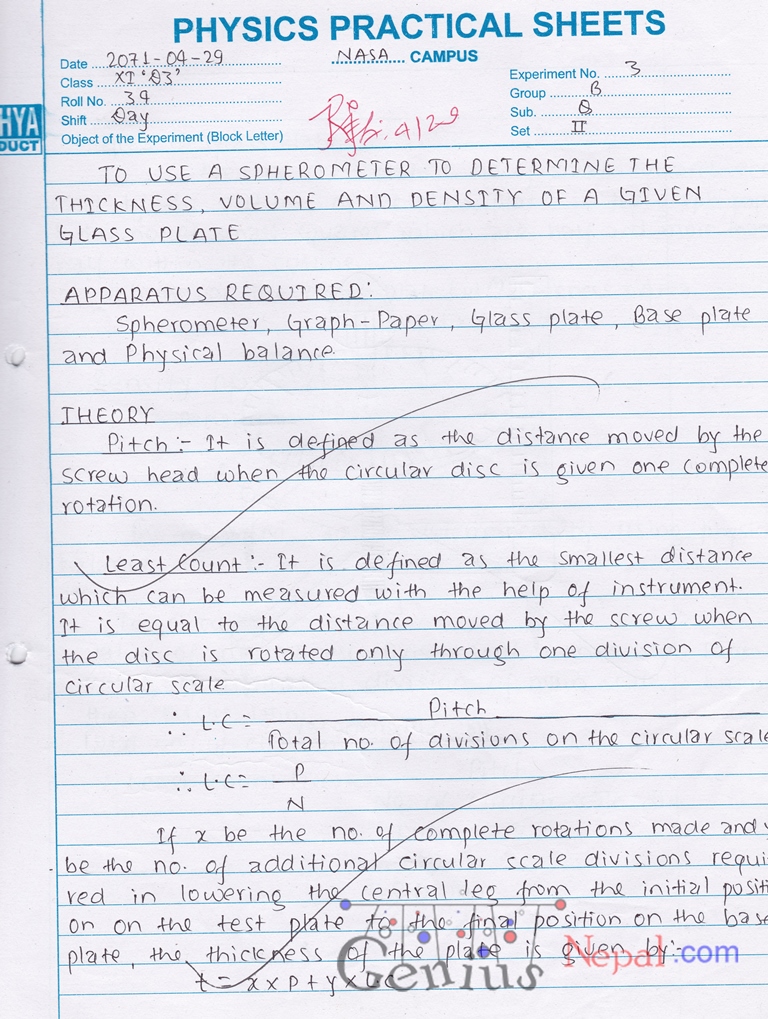 PHYSICS PRACTICAL SHEETS
Date ...2071-04-29
NASA CAMPUS
Class XI 'D3'
Experiment No. 3
Roll No. 39
Group B
Shift Day
Sub. Q
Set II
Object of the Experiment (Block Letter)
HYA
DUCT
4/29
TO USE A SPHEROMETER TO DETERMINE THE
THICKNESS, VOLUME AND DENSITY OF A GIVEN
GLASS PLATE
APPARATUS REQUIRED:
Spherometer, Graph-Paper, Glass plate, Base plate
and Physical balance.
THEORY
Pitch:- It is defined as the distance moved by the
screw head when the circular disc is given one complete
rotation.
Least Count:- It is defined as the smallest distance
which can be measured with the help of instrument.
It is equal to the distance moved by the screw when
the disc is rotated only through one division of
circular scale
∴ L.C = Pitch
Total no. of divisions on the circular scale
∴ L.C = P
N
If x be the no. of complete rotations made and y
be the no. of additional circular scale divisions requi
red in lowering the central leg from the initial positi
on on the test plate to the final position on the base
plate, the thickness of the plate is given by:
t = x x p + y x L.C
Genius Nepal.com